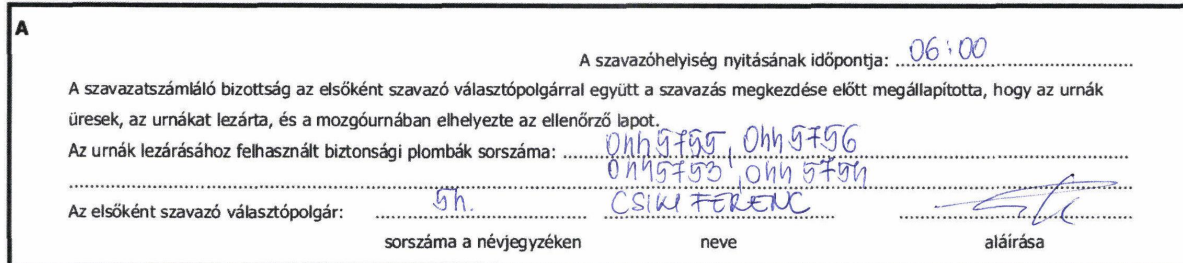 A
A szavazóhelyiség nyitásának időpontja: 06:00
A szavazatszámláló bizottság az elsőként szavazó választópolgárral együtt a szavazás megkezdése előtt megállapította, hogy az urnák
üresek, az urnákat lezárta, és a mozgóurnában elhelyezte az ellenőrző lapot.
Az urnák lezárásához felhasznált biztonsági plombák sorszáma: 0445755, 0445756
0445753, 0445754
Az elsőként szavazó választópolgár: 54. CSIKI FERENC
sorszáma a névjegyzéken neve aláírása